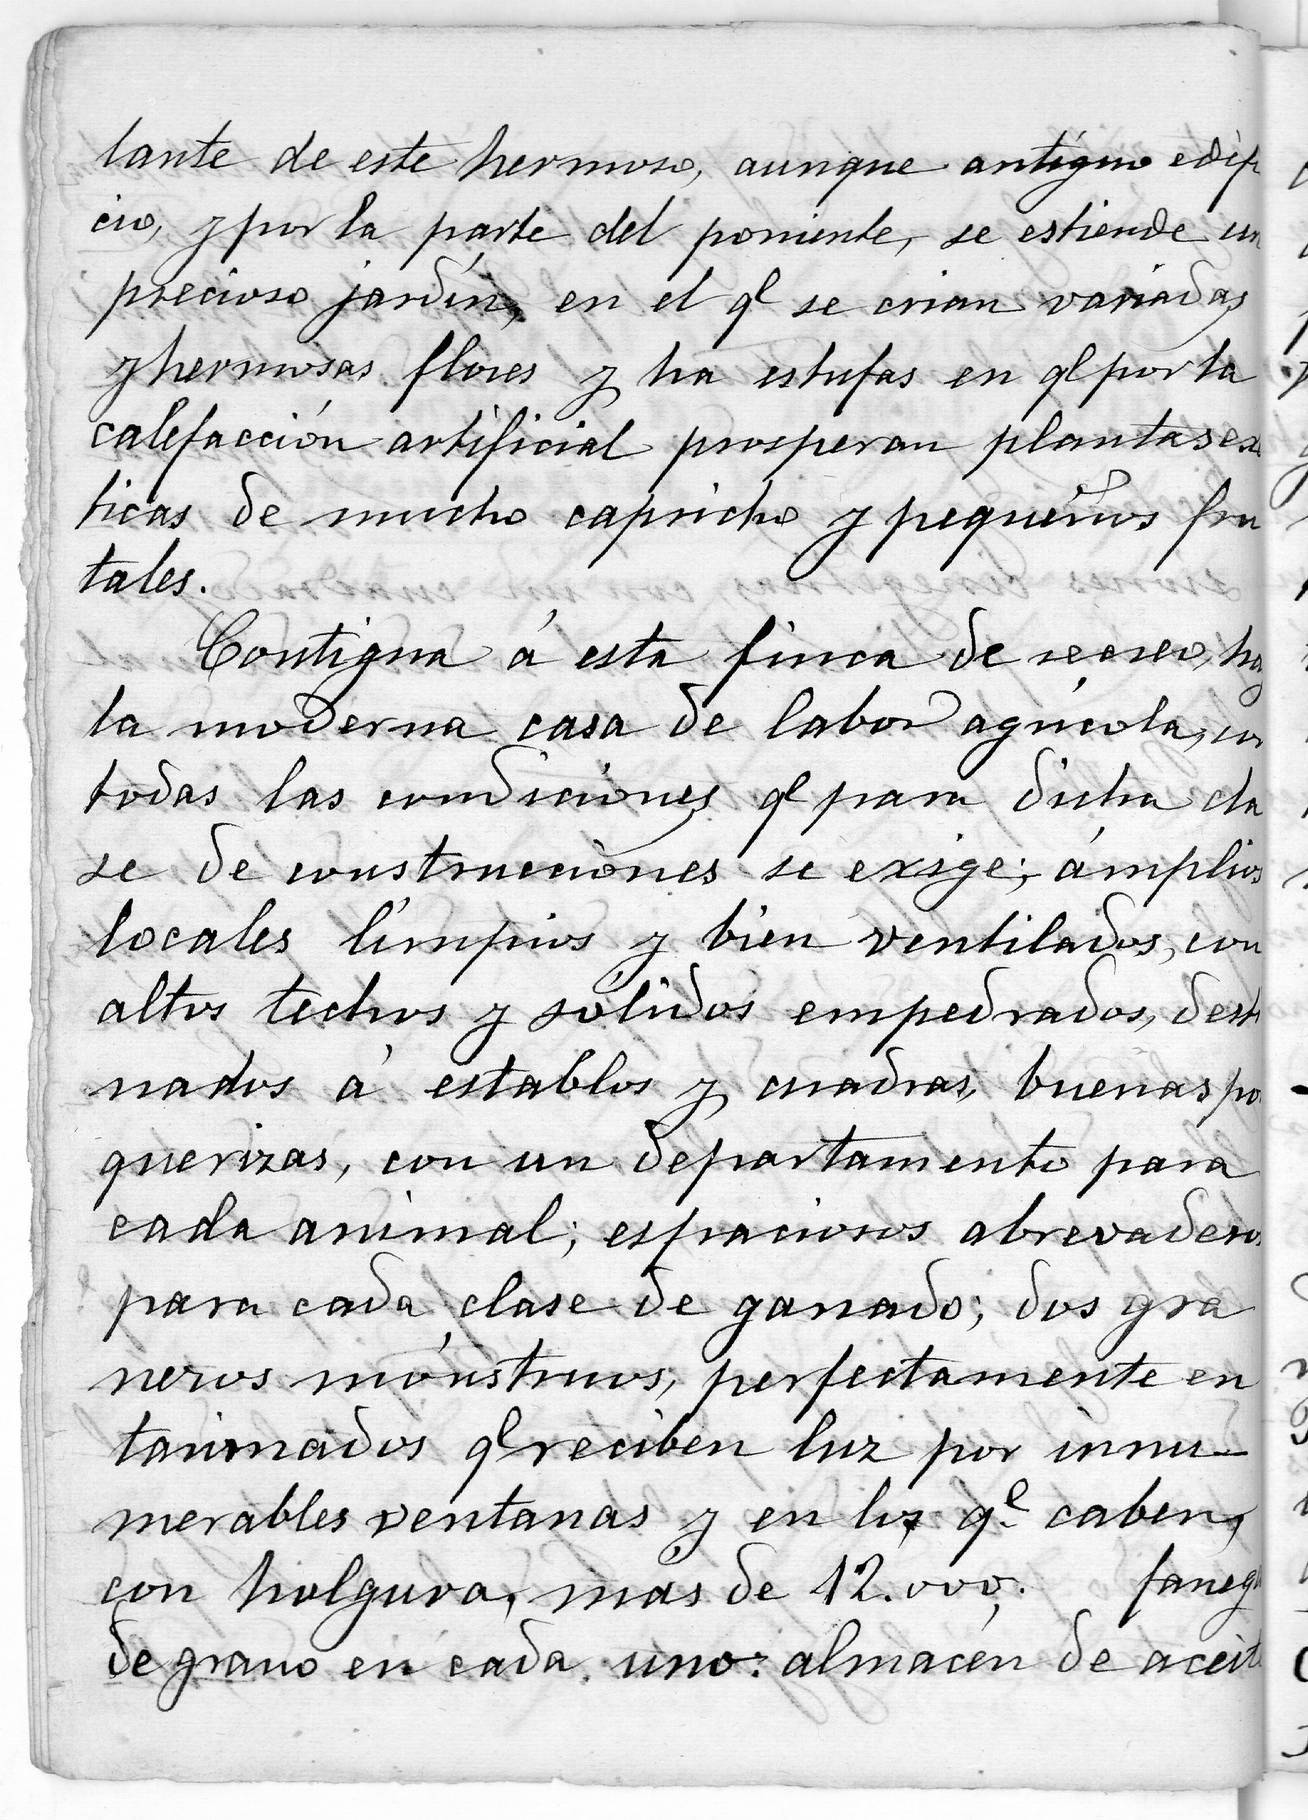 lante de este hermoso, aunque antiguo edifi
cio, y por la parte del poniente, se estiende un
precioso jardín, en el ql se crian variadas
y hermosas flores y ha estufas en ql por la
calefacción artificial prosperan plantas exó
ticas de mucho capricho y pequeños fru
tales.
Contigua á esta finca de recreo, hay
la moderna casa de labor agrícola, con
todas las condiciones ql para dicha cla
se de construcciones se exige; ámplios
locales límpios y bien ventilados, con
altos techos y sólidos empedrados, desti
nados á establos y cuadras, buenas po
querizas, con un departamento para
cada animal; espaciosos abrevaderos
para cada clase de ganado; dos gra
neros mónstruos, perfectamente en
tarimados ql reciben luz por innu-
merables ventanas y en los ql caben,
con holgura, más de 12.000. fanegas
de grano en cada uno: almacén de aceite